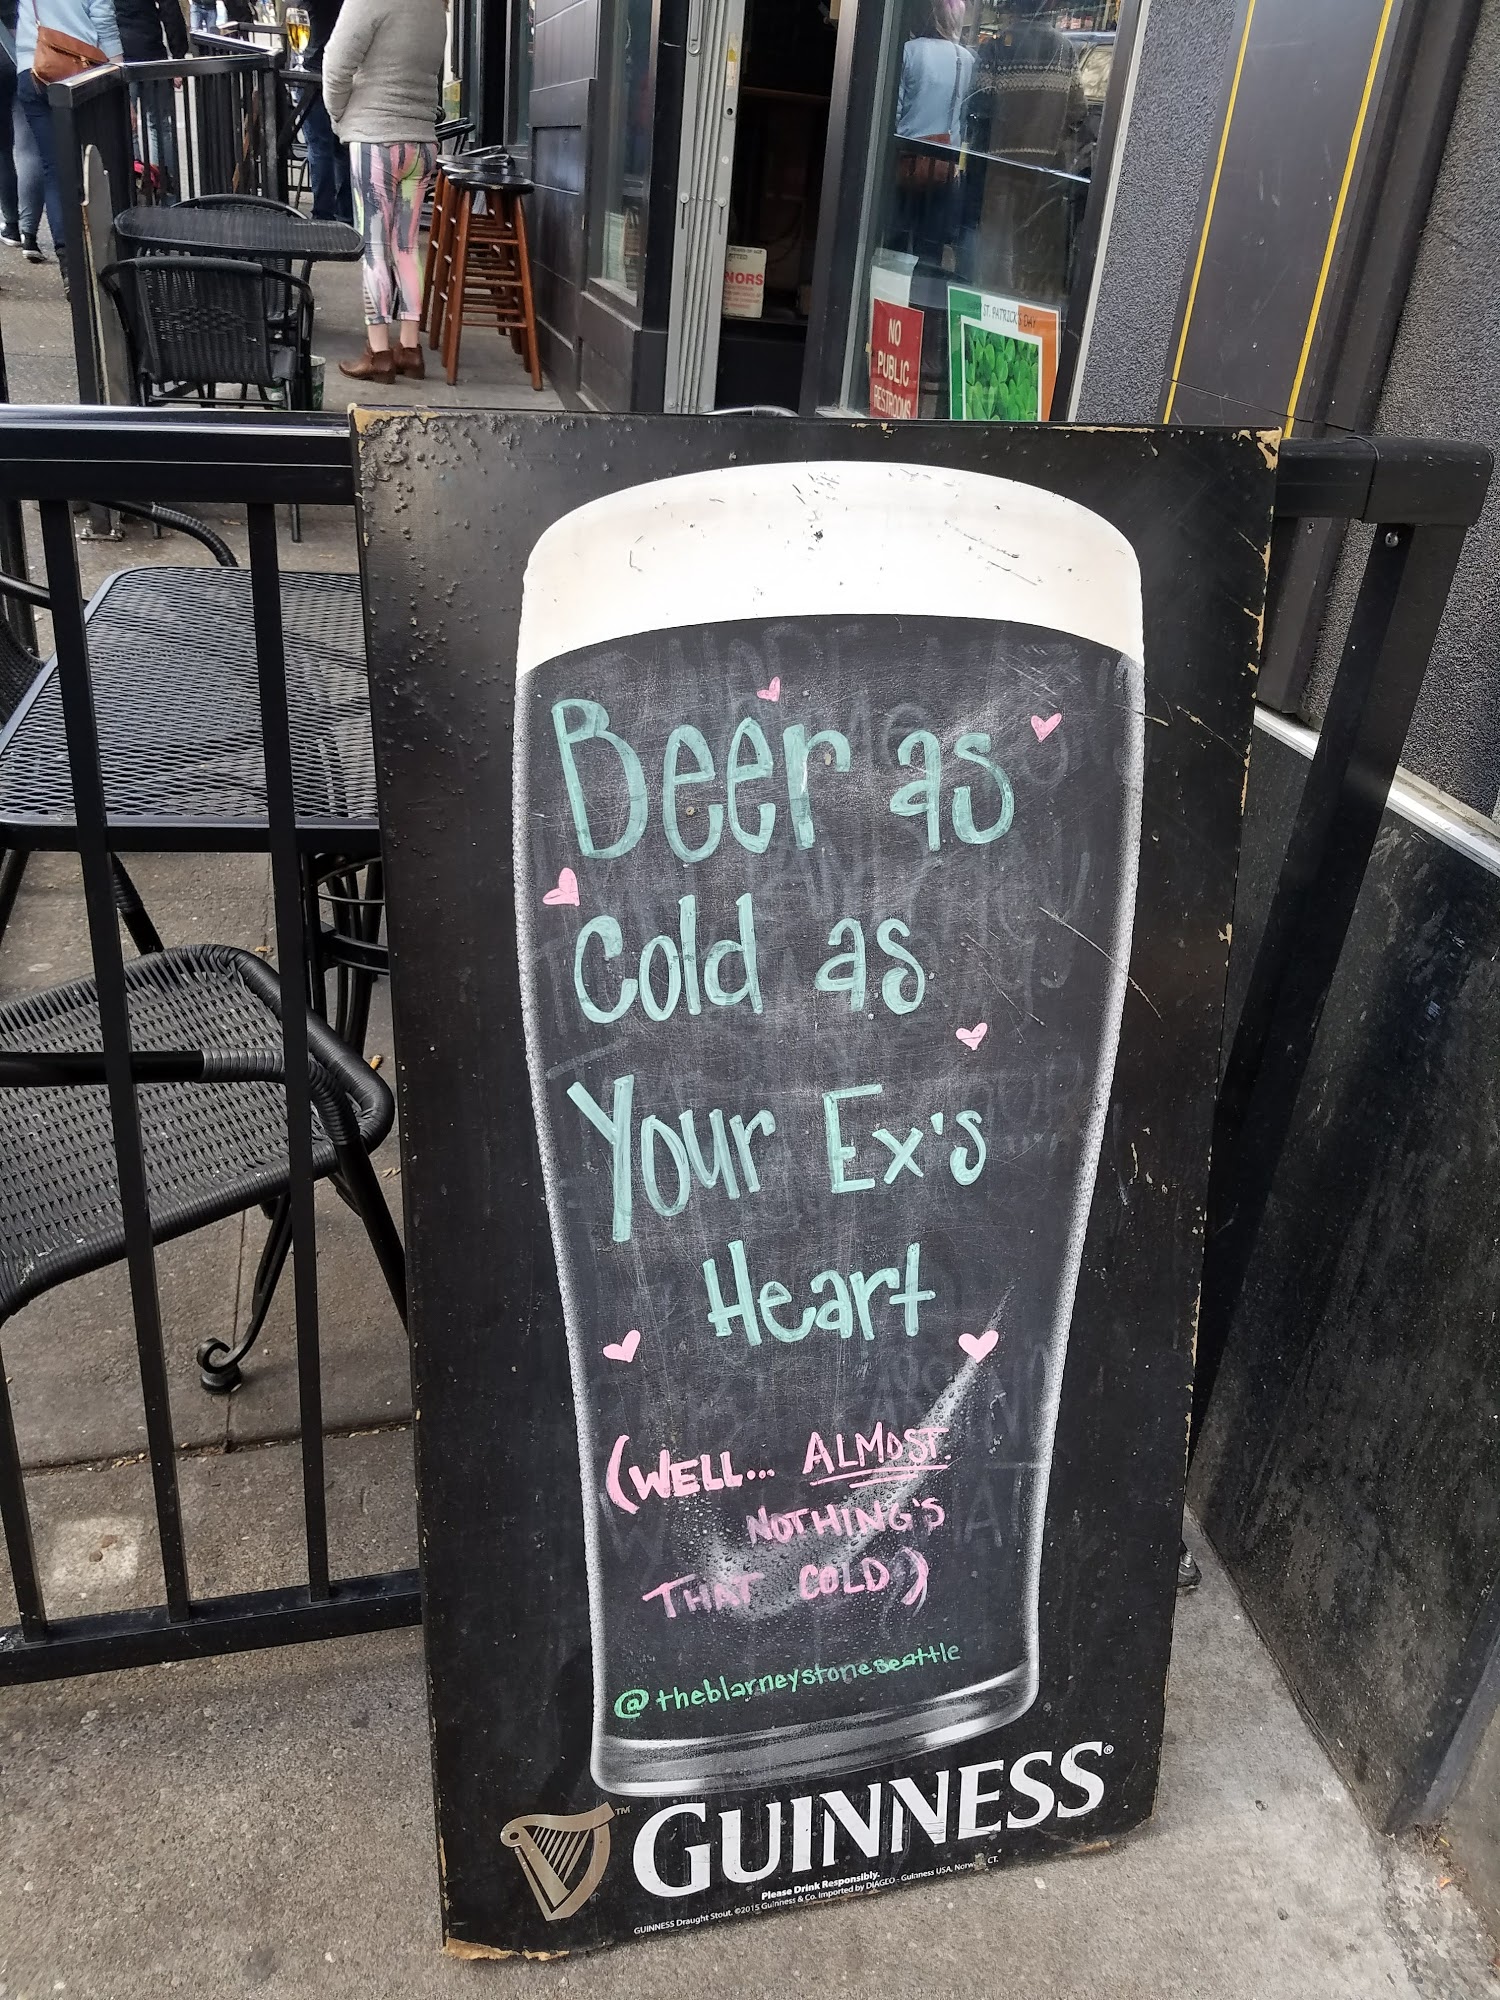 NORS
NO
PUBLIC
RESTROOMS
ST. PATRICK'S DAY
Beer as
Cold as
Your Ex's
Heart
(WELL... ALMOST.
NOTHING'S
THAT COLD)
@theblarneystoneseattle
™ GUINNESS®
Please Drink Responsibly.
GUINNESS Draught Stout. ©2015 Guinness & Co. Imported by DIAGEO - Guinness USA, CT.